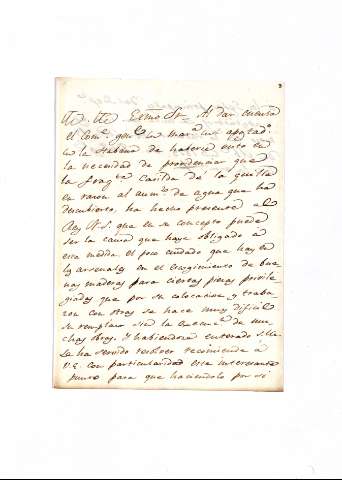 Exmo Sr. Al dar cuenta
el Com.e gen.l de mar.a del apostad.o
de la Habana de haberse visto en
la necesidad de providenciar que
la frag.ta Casilda de la quilla
en razon al aum.to de agua que ha
descubierto, ha hecho presente al
Rey N. S. que en su concepto puede
ser la causa que haya obligado á
esta medida el poco cuidado que hay en
los arsenales en el escogimiento de bue-
nas maderas para ciertas piezas privile-
giadas que por su colocacion y traba-
zon con otras se hace muy dificil
su remplazo sin la de mu-
chas obras. Y habiendose enterado S.M.
se ha servido resolver recomiende á
V.E. con particularidad este interesante
punto para que haciendolo por sí